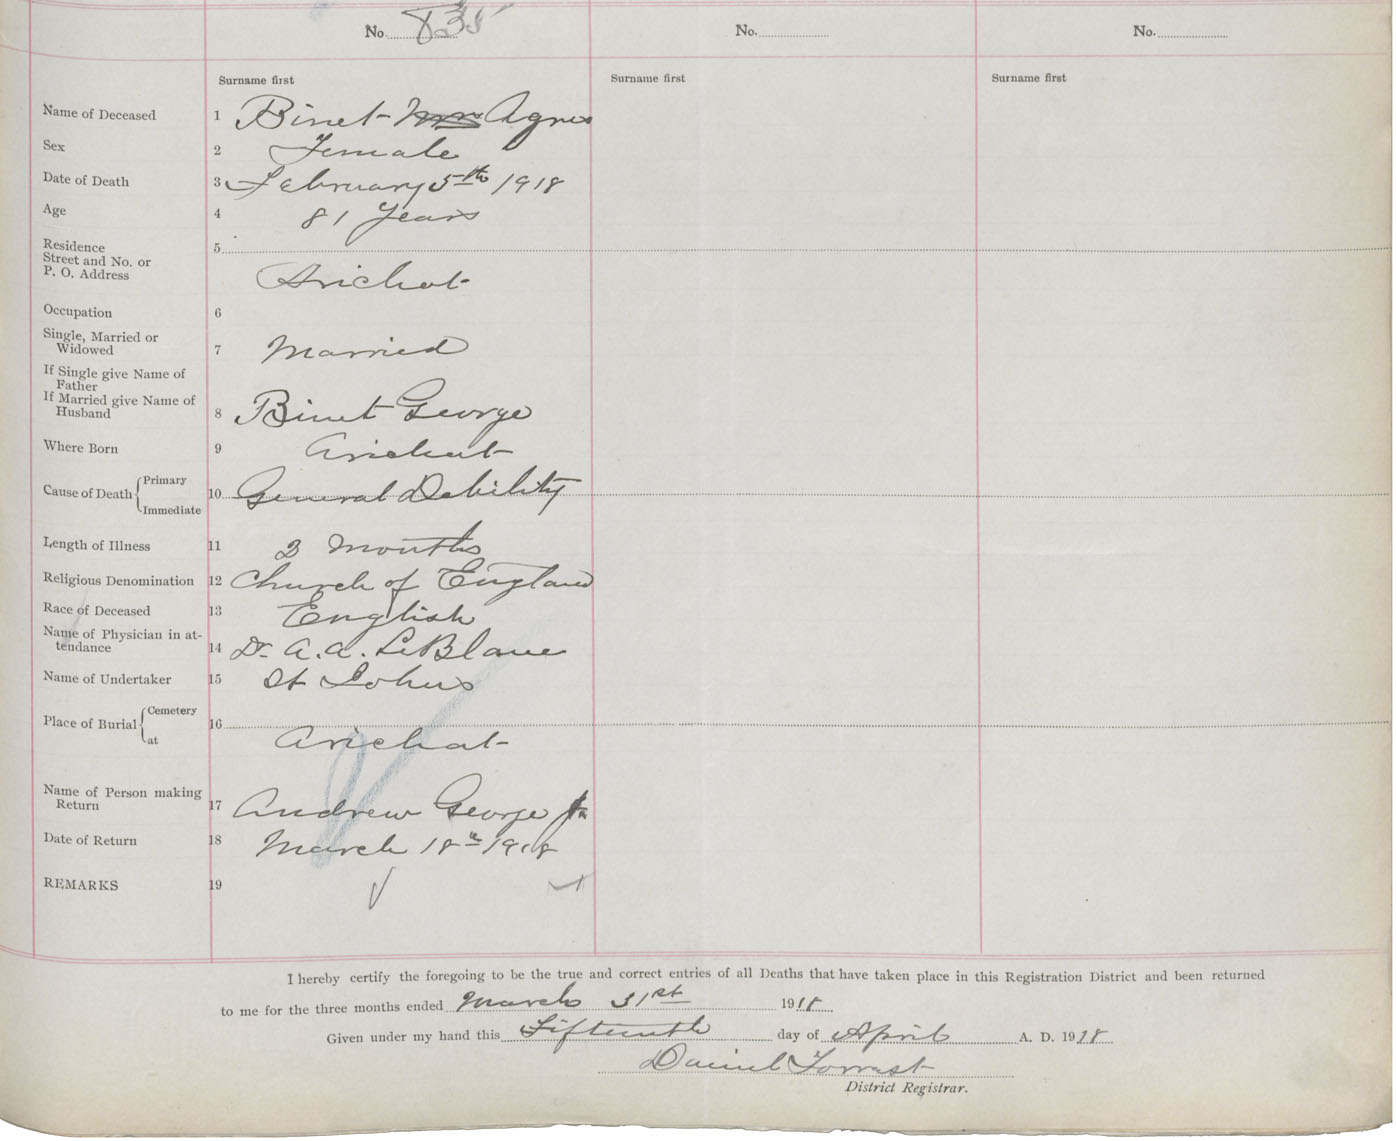 No. 835 No. No.
Surname first Surname first Surname first
Name of Deceased 1 Binet Mrs Agnes
Sex 2 Female
Date of Death 3 February 5th 1918
Age 4 81 Years
Residence 5
Street and No. or
P. O. Address Arichat
Occupation 6
Single, Married or
Widowed 7 Married
If Single give Name of
Father
If Married give Name of
Husband 8 Binet George
Where Born 9 Arichat
Cause of Death Primary
10 General Debility
Immediate
Length of Illness 11 3 Months
Religious Denomination 12 Church of England
Race of Deceased 13 English
Name of Physician in at-
tendance 14 Dr. A. A. LeBlanc
Name of Undertaker 15 St Johns
Place of Burial Cemetery
16
at Arichat
Name of Person making
Return 17 Andrew George Jr
Date of Return 18 March 18th 1918
REMARKS 19
I hereby certify the foregoing to be the true and correct entries of all Deaths that have taken place in this Registration District and been returned
to me for the three months ended March 31st 1918
Given under my hand this Fifteenth day of April A. D. 1918
Daniel Forrest
District Registrar.